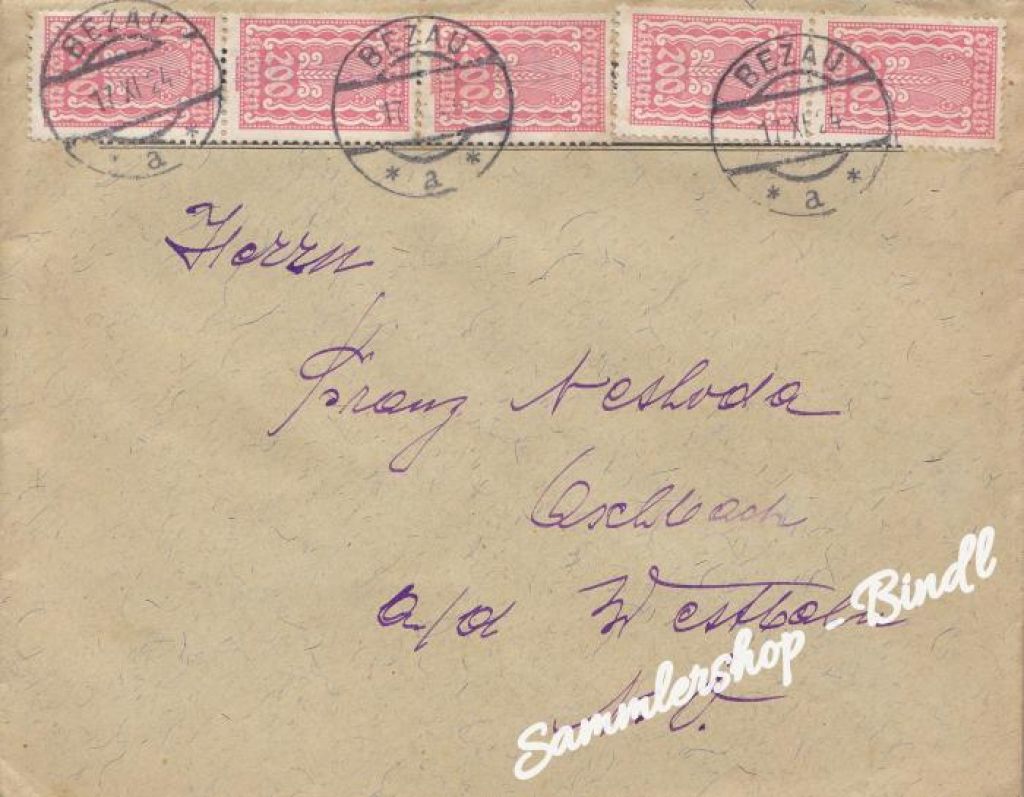 BEZAU
17 XI 24
* a *
BEZAU
17
* a *
BEZAU
17 XI 24
* a *
200
200
200
Herrn
Franz
Aschbach
a/d Westbahn
Sammlershop - Bindl